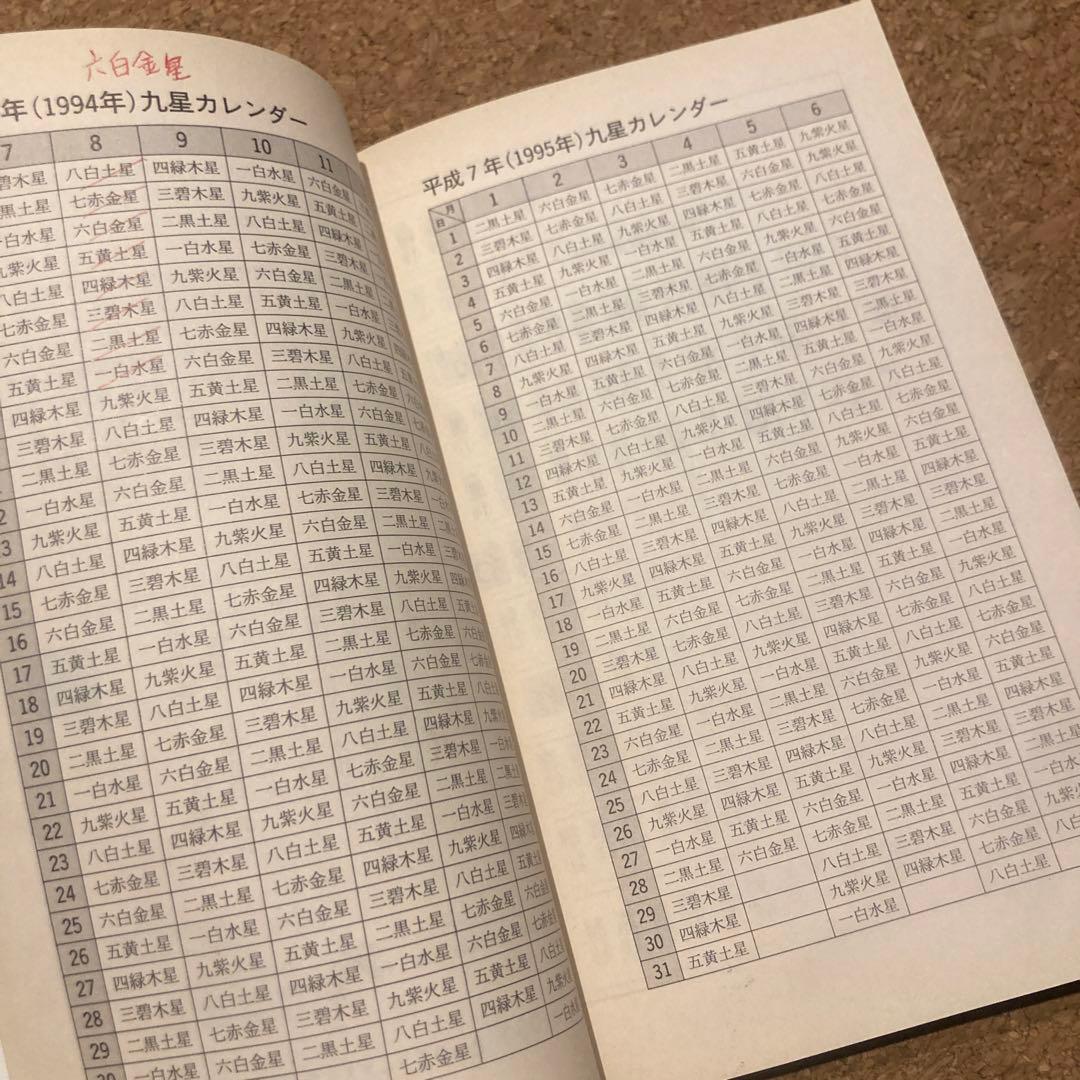 六白金星
年(1994年)九星カレンダー
7 8 9 10 11
碧木星 八白土星 四緑木星 一白水星 六白金星
黒土星 七赤金星 三碧木星 九紫火星 五黄土星
一白水星 六白金星 二黒土星 八白土星 四緑木星
九紫火星 五黄土星 一白水星 七赤金星 三碧木星
八白土星 四緑木星 九紫火星 六白金星 二黒土星
七赤金星 三碧木星 八白土星 五黄土星 一白水星
六白金星 二黒土星 七赤金星 四緑木星 九紫火星
五黄土星 一白水星 六白金星 三碧木星 八白土星
四緑木星 九紫火星 五黄土星 二黒土星 七赤金星
三碧木星 八白土星 四緑木星 一白水星 六白金星
二黒土星 七赤金星 三碧木星 九紫火星 五黄土星
2 一白水星 六白金星 二黒土星 八白土星 四緑木星
3 九紫火星 五黄土星 一白水星 七赤金星 三碧木星
14 八白土星 四緑木星 九紫火星 六白金星 二黒土星
15 七赤金星 三碧木星 八白土星 五黄土星 一白水星
16 六白金星 二黒土星 七赤金星 四緑木星 九紫火星
17 五黄土星 一白水星 六白金星 三碧木星 八白土星
18 四緑木星 九紫火星 五黄土星 二黒土星 七赤金星
19 三碧木星 八白土星 四緑木星 一白水星 六白金星
20 二黒土星 七赤金星 三碧木星 九紫火星 五黄土星
21 一白水星 六白金星 二黒土星 八白土星 四緑木星
22 九紫火星 五黄土星 一白水星 七赤金星 三碧木星
23 八白土星 四緑木星 九紫火星 六白金星 二黒土星
24 七赤金星 三碧木星 八白土星 五黄土星 一白水星
25 六白金星 二黒土星 七赤金星 四緑木星 九紫火星
26 五黄土星 一白水星 六白金星 三碧木星 八白土星
27 四緑木星 九紫火星 五黄土星 二黒土星 七赤金星
28 三碧木星 八白土星 四緑木星 一白水星 六白金星
29 二黒土星 七赤金星 三碧木星 九紫火星 五黄土星
30 一白水星 六白金星 二黒土星 八白土星 四緑木星
七赤金星
平成7年(1995年)九星カレンダー
日 月 1 2 3 4 5 6
1 二黒土星 六白金星 七赤金星 二黒土星 五黄土星 九紫火星
2 三碧木星 七赤金星 八白土星 三碧木星 六白金星 九紫火星
3 四緑木星 八白土星 九紫火星 四緑木星 七赤金星 八白土星
4 五黄土星 九紫火星 一白水星 五黄土星 八白土星 七赤金星
5 六白金星 一白水星 二黒土星 六白金星 九紫火星 六白金星
6 七赤金星 二黒土星 三碧木星 七赤金星 一白水星 五黄土星
7 八白土星 三碧木星 四緑木星 八白土星 二黒土星 四緑木星
8 九紫火星 四緑木星 五黄土星 九紫火星 三碧木星 三碧木星
9 一白水星 五黄土星 六白金星 一白水星 四緑木星 二黒土星
10 二黒土星 六白金星 七赤金星 二黒土星 五黄土星 一白水星
11 三碧木星 七赤金星 八白土星 三碧木星 六白金星 九紫火星
12 四緑木星 八白土星 九紫火星 四緑木星 七赤金星 八白土星
13 五黄土星 九紫火星 一白水星 五黄土星 八白土星 七赤金星
14 六白金星 一白水星 二黒土星 六白金星 九紫火星 六白金星
15 七赤金星 二黒土星 三碧木星 七赤金星 一白水星 五黄土星
16 八白土星 三碧木星 四緑木星 八白土星 二黒土星 四緑木星
17 九紫火星 四緑木星 五黄土星 九紫火星 三碧木星 三碧木星
18 一白水星 五黄土星 六白金星 一白水星 四緑木星 二黒土星
19 二黒土星 六白金星 七赤金星 二黒土星 五黄土星 一白水星
20 三碧木星 七赤金星 八白土星 三碧木星 六白金星 九紫火星
21 四緑木星 八白土星 九紫火星 四緑木星 七赤金星 八白土星
22 五黄土星 九紫火星 一白水星 五黄土星 八白土星 七赤金星
23 六白金星 一白水星 二黒土星 六白金星 九紫火星 六白金星
24 七赤金星 二黒土星 三碧木星 七赤金星 一白水星 五黄土星
25 八白土星 三碧木星 四緑木星 八白土星 二黒土星 四緑木星
26 九紫火星 四緑木星 五黄土星 九紫火星 三碧木星 三碧木星
27 一白水星 五黄土星 六白金星 一白水星 四緑木星 二黒土星
28 二黒土星 六白金星 七赤金星 二黒土星 五黄土星 一白水
29 三碧木星 八白土星 三碧木星 六白金星 九紫火
30 四緑木星 九紫火星 四緑木星 七赤金星 八白
31 五黄土星 一白水星 八白土星